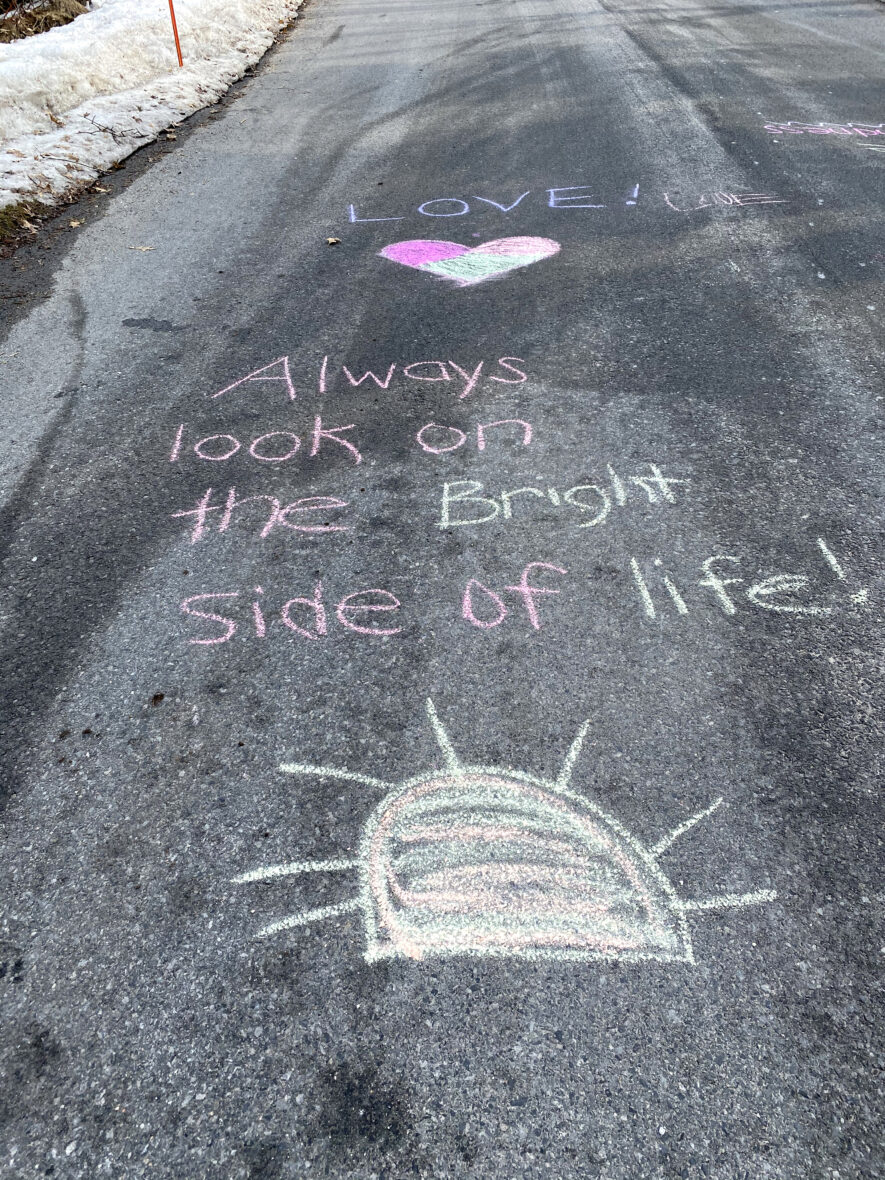 LOVE! LOVE
Always
look on
the Bright
side of life!